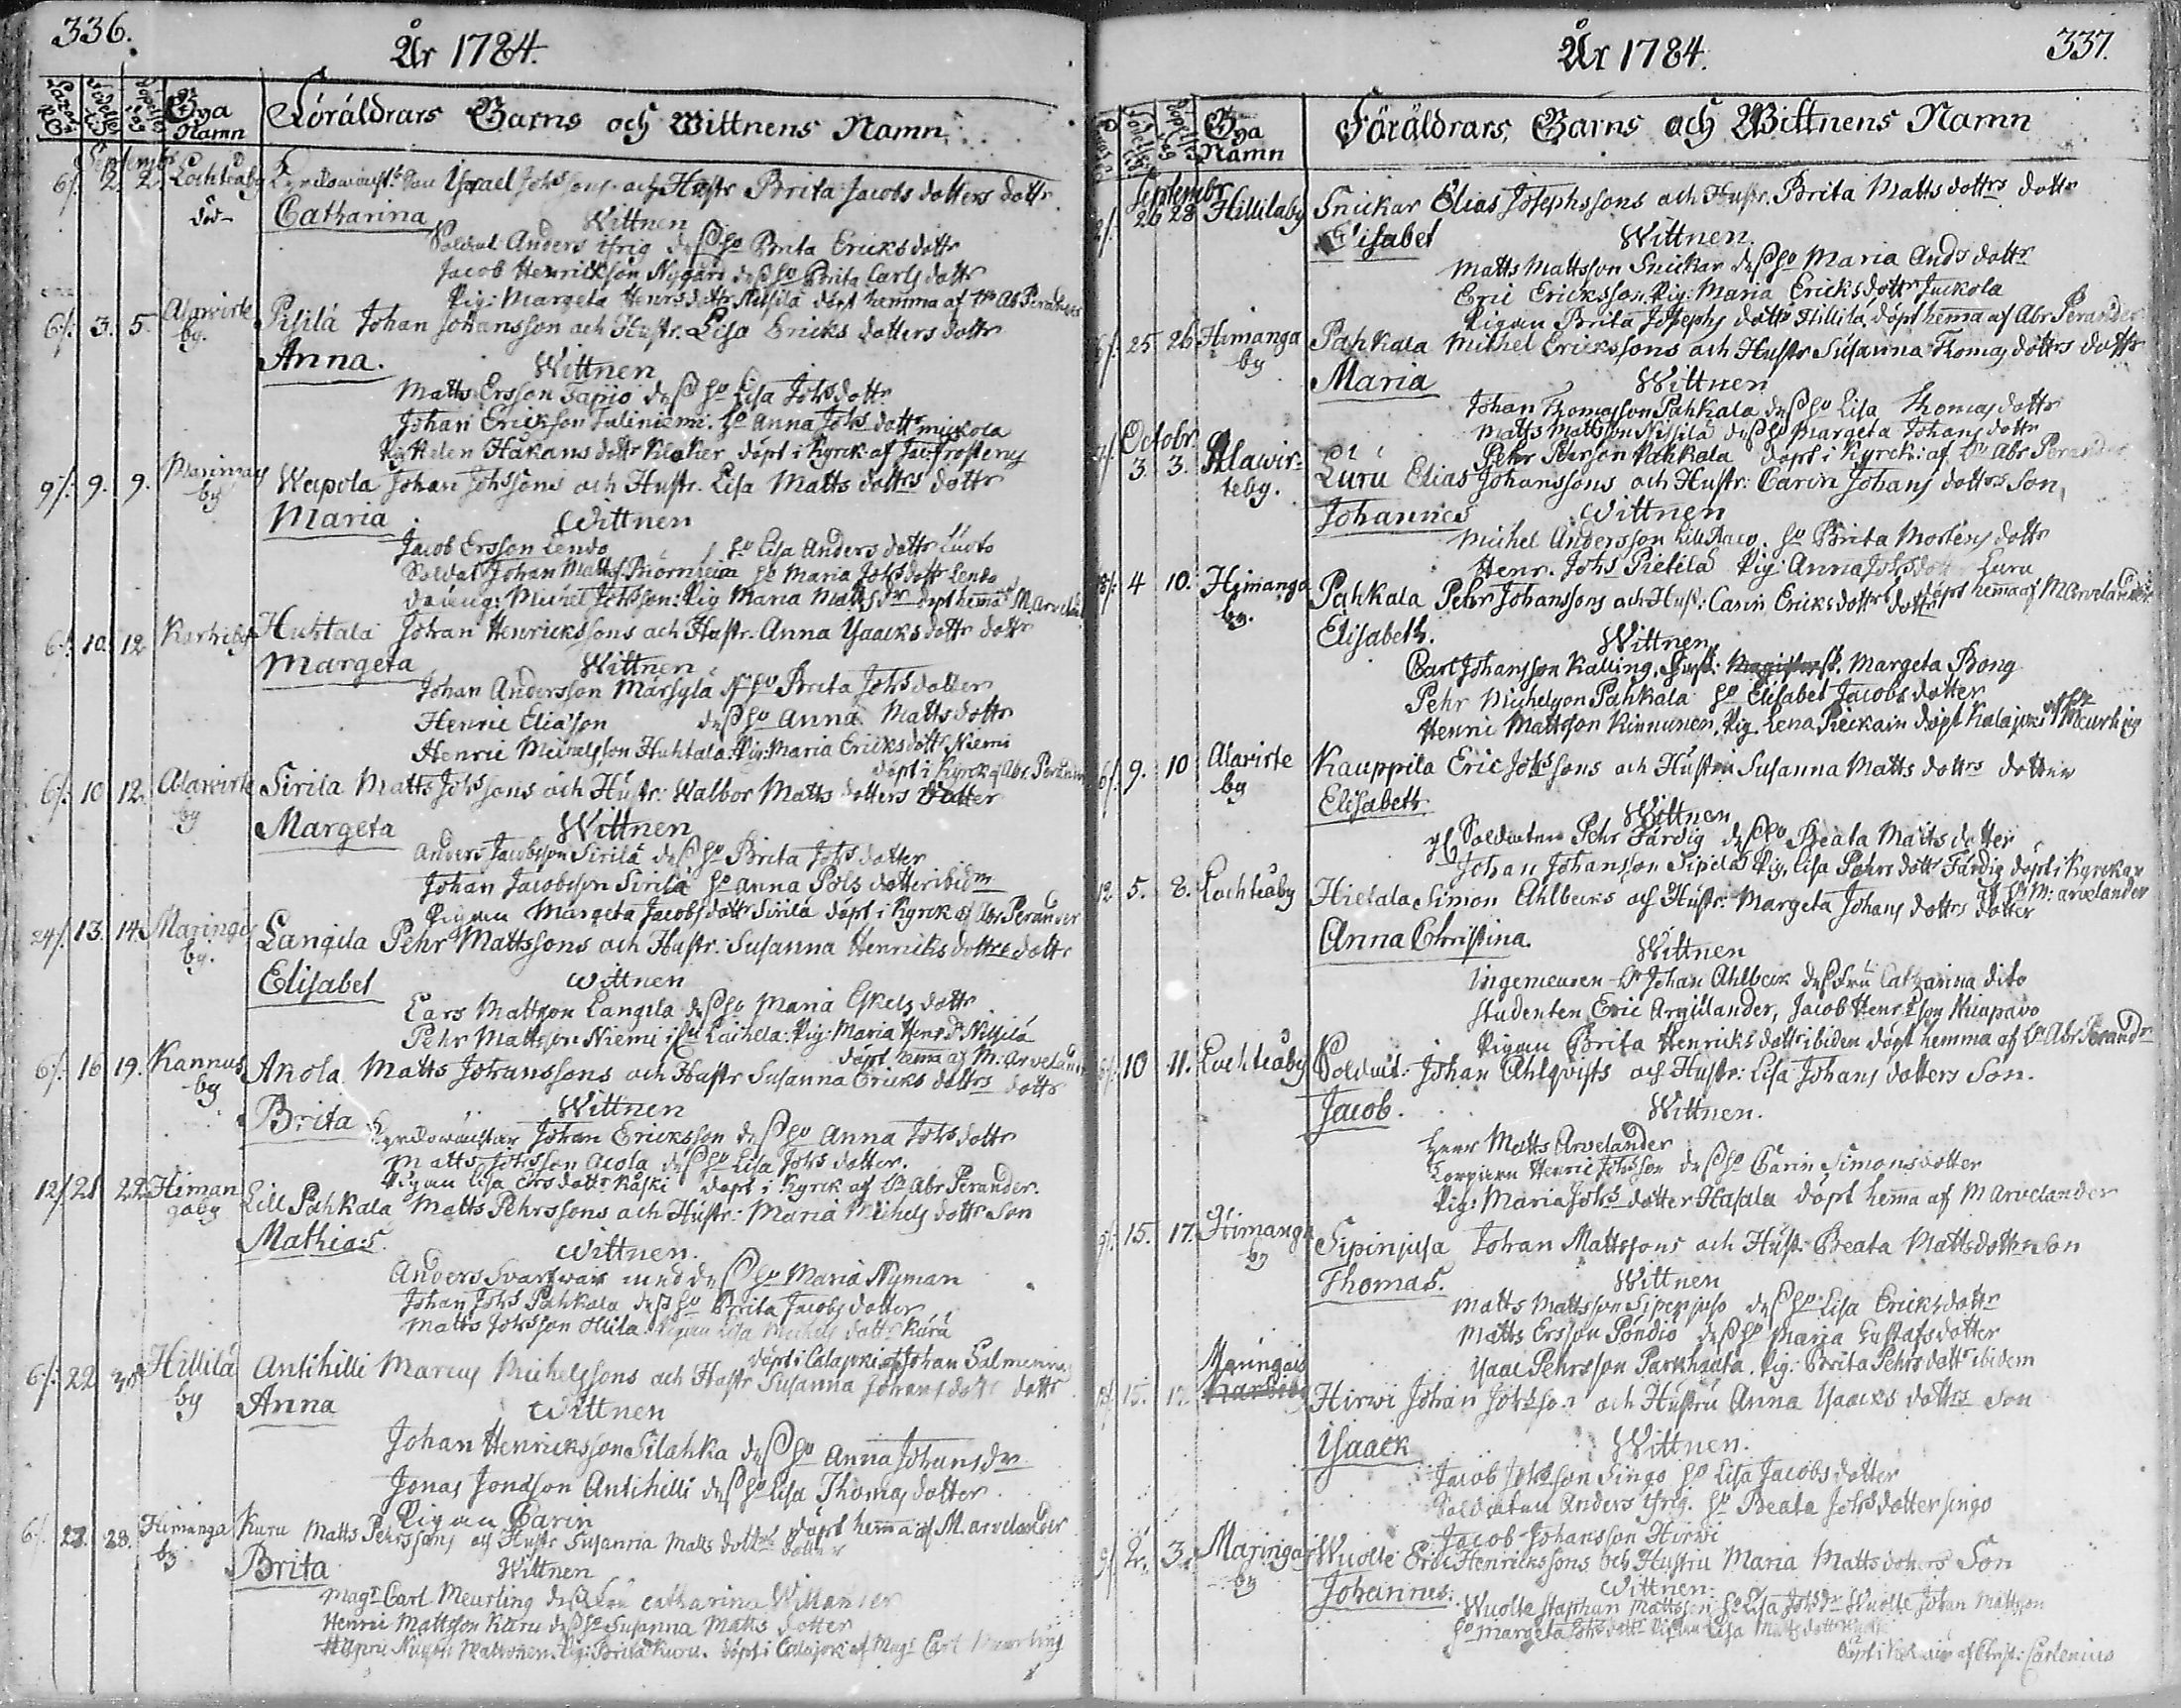 336.
År 1784.
Bya Namn
Föräldrars Barns och Wittnens Namn
Septembr
6/. 2. 2. Lochteåby Israel Johssons och Hustr Brita Jacobs dotters dottr
död
Catharina
Wittnen
Soldat Anders ifrig dess ho Brita Ericks dottr
Jacob Henrickson Nygård dess ho Brita Carls dottr
Pig: Margeta Henrs dottr Nissilä döpt hemma af Abr Perander
6/. 3. 5. Alawirte by. Pisilä Johan Johansson och Hustr. Lisa Ericks dotters dottr
Anna.
Wittnen
Matts Ersson Tapio dess ho Lisa Johs dottr
Johan Erickson Juliniemi. ho Anna Johs dottr
Pig Helen Håkans dottr döpt i Kyrck. af
9/. 9. 9. Maringais by Wapola Johan Johssons och Hustr. Lisa Matts dottrs dottr
Maria
Wittnen
Jacob Ersson Lendo ho Lisa Anders dottr
Soldat Johan Matts ho Maria Johs dottr Lendo
Johsson: Pig Maria Matts dr döpt hemma af M Arvelander
6/. 10. 12 Huhtala Johan Henrickssons och Hustr. Anna Ysaacks dottr dottr
Margeta
Wittnen
Johan Andersson Märsylä ho Brita Johs dotter
Henric Eliasson dess ho Anna Matts dottr
Henric Michelsson Huhtala. Pig: Maria Ericks dottr Niemi
döpt i Kyrck af Abr. Perander
6/. 10 12. Alawirte by Sirila Matts Johssons och Hustr: Walbor Matts dotters dotter
Margeta
Wittnen
Anders Jacobsson Sirilä dess ho Brita Johs dotter
Johan Jacobsson Sirilä ho Anna Påls dotter ibidm
Pigan Margeta Jacobs dottr Sirilä döpt i Kyrck af Abr Perander
24/. 13. 14. Maringais by. Långila Pehr Mattssons och Hustr: Susanna Henricks dottrs dottr
Elisabet
Wittnen
Lars Mattsson Långila dess ho Maria Eskels dottr
Pehr Mattsson Niemi Pig: Maria Henrs dr Nissilä
döpt hema af M: Arvelander
6/. 16 19. Kannus by Akola Matts Johanssons och Hustr Susanna Ericks dottrs dottr
Brita
Wittnen
Johan Ericksson dess ho Anna Johs dottr
Matts Johsson Acola dess ho Lisa Johs dotter.
Pigan Lisa Ers dottr Kåski döpt i Kyrck af Abr Perander.
12/. 21 22. Himan gaby Lill Pahkala Matts Pehrssons och Hustr: Maria Michels dottr Son
Mathias.
Wittnen.
Anders Svartwar med dess ho Maria Nyman
Johan Johs Pahkala dess ho Brita Jacobs dotter
Matts Johsson Ollila Pigan Lisa Michels dottr Kuru
döpt i Calajoki af Johan Salmenius
6/. 22 Hillilä by Antihilli Marcus Michelssons och Hustr Susanna Johans dottr dottr
Anna
Wittnen
Johan Henricksson Pilahka dess ho Anna Johans dr
Jonas Jonsson Antihilli dess ho Lisa Thomas dotter.
Pigan Carin döpt hemma af M. Arvelander
6/. 28. Himanga by Kuru Matts Pehrssons och Hustr Susanna Matts dottrs dotter
Brita
Wittnen
Magr Carl Meurling dess Fru Catharina Wittander
Henric Mattsson Kuru dess ho Susanna Matts dotter
Pig: Brita Kuru. döpt i Calajok af Magr Carl Meurling
337.
År 1784.
Bya Namn
Föräldrars, Barns och Wittnens Namn
Septembr
26 28 Hillilaby Snickar Elias Josephssons och Hustr. Brita Matts dottrs dottr
Elisabet
Wittnen.
Matts Mattsson Snickar dess ho Maria Ands dottr
Eric Ericksson. Pig: Maria Ericks dottr Juckola
Pigan Brita Josephs dottr Hillilä, döpt hema af Abr Perander
25 26 Himanga by Pahkala Michel Erickssons och Hustr Susanna Thomas dottrs dottr
Maria
Wittnen
Johan Thomasson Pahkala dess ho Lisa Thomas dottr
Matts Mattsson Nissilä dess ho Margeta Johans dottr
Pehr Pehrson Pahkala döpt i Kyrck: af Abr Perander
Octobr.
3. 3. Alawirteby. Luru Elias Johanssons och Hustr: Carin Johans dotters Son,
Johannes
Wittnen
Michel Andersson ho Brita Mortens dottr
Henr. Johs Pietilä Pig: Anna Johs dottr Luru
döpt hema af M Arvelander
4 10. Himanga by. Pahkala Pehr Johanssons och Hust: Carin Ericks dottr dottr
Elisabeth.
Wittnen
Carl Johansson Kalling, Margeta Bong
Pehr Michelsson Pahkala ho Elisabet Jacobs dotter
Henric Mattsson Kinnunen, Pig. Lena Reckain döpt Kalajoki af Meurling
6/. 9. 10 Alavirte by Kauppila Eric Johssons och Hustru Susanna Matts dottrs dotter
Elisabeth
Wittnen
Soldaten Pehr Färdig dess ho Beata Matts dotter
Johan Johansson Sipilä Pig, Lisa Pehrs dottr Färdig döpt i Kyrckan
af M: Arvelander
12 5. 8. Lochteåby Hietala Simon Ahlbecks och Hustr: Margeta Johans dottrs dotter
Anna Christina.
Wittnen
Ingemeuren Hr Johan Ahlbeck dess Fru Catharina dito
Studenten Eric Argillander, Jacob Henrsson Kiuparo
Pigan Brita Henricks dottr ibidem döpt hemma af Abr Perandr
10 11. Lochteåby Soldat: Johan Ahlqvists och Hustr: Lisa Johans dotters Son.
Jacob.
Wittnen.
Herr Matts Arvelander
Henric Johsson dess ho Carin Simons dotter
Pig: Maria Johs dotter Hasala döpt hema af M Arvelander
9/. 15. 17. Himanga by Sipinjusa Johan Mattssons och Hustr Beata Matts dottrs Son
Thomas.
Wittnen
Matts Mattsson Sipinjuso dess ho Lisa Ericks dottr
Matts Ersson Pöndiö dess ho Maria Gustafs dotter
Ysaac Pehrsson Parkhaata. Pig: Brita Pehrs dottr ibidem
15. 17. Maringais Hirwi Johan Johssons och Hustru Anna Ysaacks dottrs Son
Ysaack
Wittnen.
Jacob Johsson Singo ho Lisa Jacobs dotter
Soldaten Anders ifrig. ho Beata Johs dotter Singo
Jacob Johansson Hirwi
9/. 2. 3. Maringais by Wuolle Eric Henrickssons och Hustru Maria Matts doters Son
Johannes.
Wittnen.
Wuolle Staphan Mattsson ho Lisa Johs dr Wuolle Johan Mattsson
ho Margeta Johs dottr Pigan Lisa Matts dottr
döpt i af Christ: Carlenius